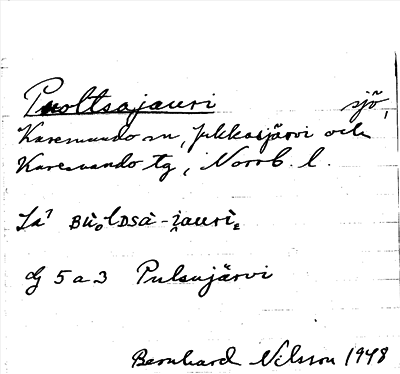 Puoltsajauri sjö,
Karesuando sn, Jukkasjärvi och
Karesuando tg, Norrb. l.
La¹ BùₒlDsà-i̯auri̇̀
dj 5 a 3 Pulsujärvi
Bernhard Nilsson 1948